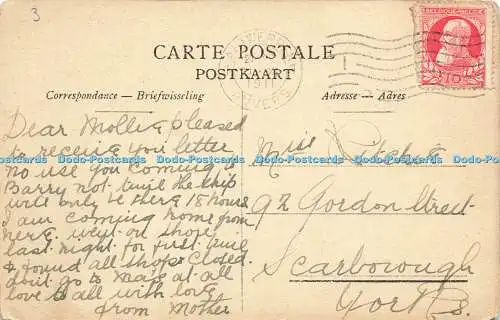 3
CARTE POSTALE
POSTKAART
Correspondance — Briefwisseling
Adresse — Adres
BELGIQUE·BELGIË
10
1911
ANVERS
Dear Mollie pleased
to receive you letter
no use you coming
Barry not time the ship
will only be there 18 hours
I am coming home from
here. went on shore
last night for first time
& found all shops closed.
dont go to Ma's at all
love to all with love
from Mother
Miss
92 Gordon Street
Scarborough
Yorks.
Dodo-Postcards Dodo-Postcards Dodo-Postcards Dodo-Postcards Dodo-Postcards Dodo-Postcards